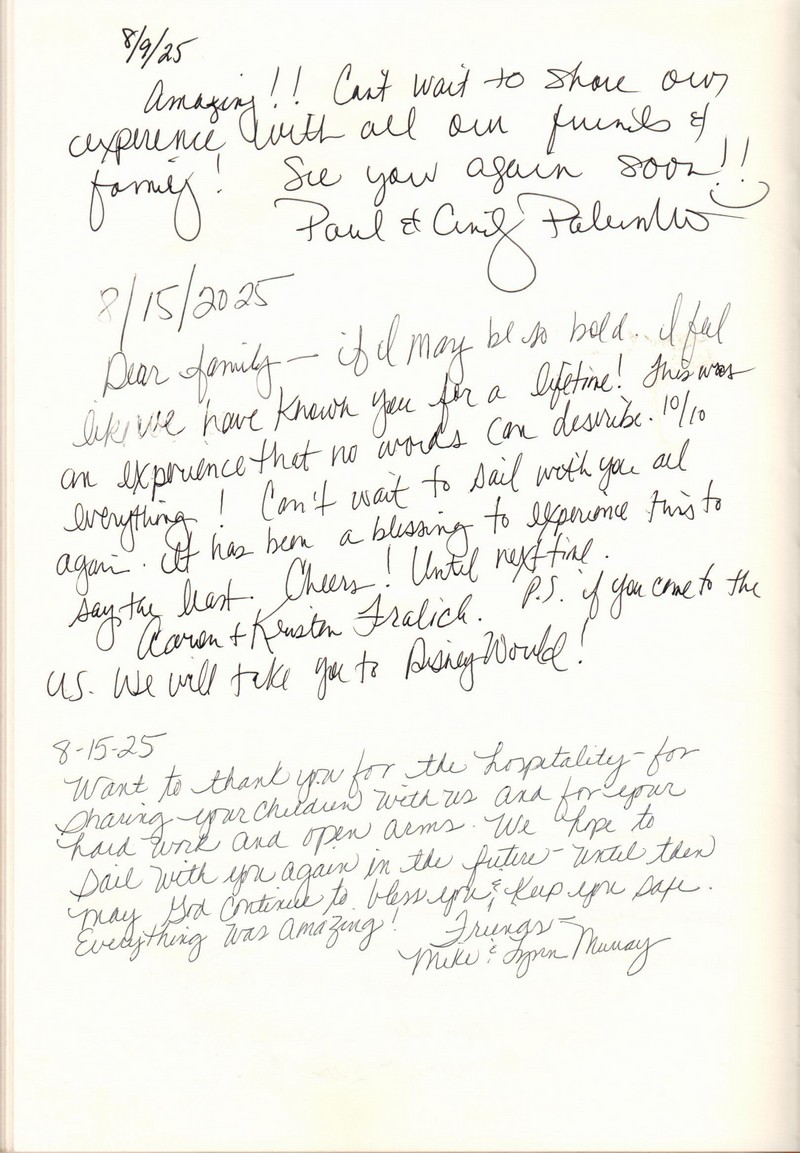 8/9/25
Amazing!! Can't wait to share our
experience with all our friends &
family! See you again soon!!
Paul & Cindy
8/15/2025
Dear family — if I may be so bold. I feel
like we have known you for a lifetime! This was
an experience that no words can describe. 10/10
everything! Can't wait to sail with you all
again. It has been a blessing to experience this to
say the least. Cheers! Until next time.
Aaron + Kristen Fralich. P.S. if you come to the
US. We will take you to Disney World!
8-15-25
Want to thank you for the hospitality - for
sharing your children with us and for your
hard work and open arms. We hope to
sail with you again in the future - Until then
may God continue to bless you & keep you safe.
Everything was amazing! Friends -
Mike & Lynn Murray